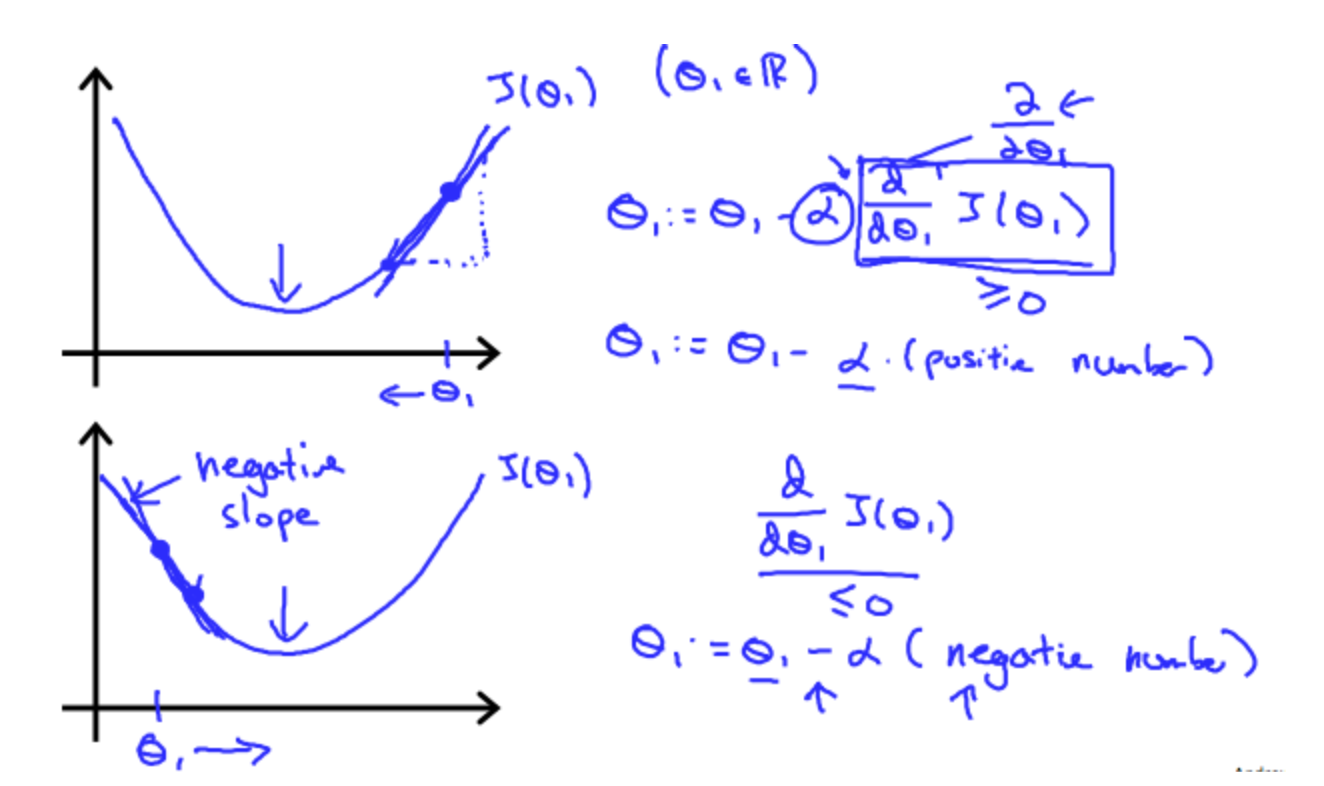 J(θ₁) (θ₁ ∈ ℝ)
∂/∂θ₁ ←
θ₁ := θ₁ - α d/dθ₁ J(θ₁)
≥ 0
θ₁ := θ₁ - α · (positie number)
← θ₁
negative
slope
J(θ₁)
d/dθ₁ J(θ₁)
≤ 0
θ₁ := θ₁ - α (negatie number)
θ₁ →